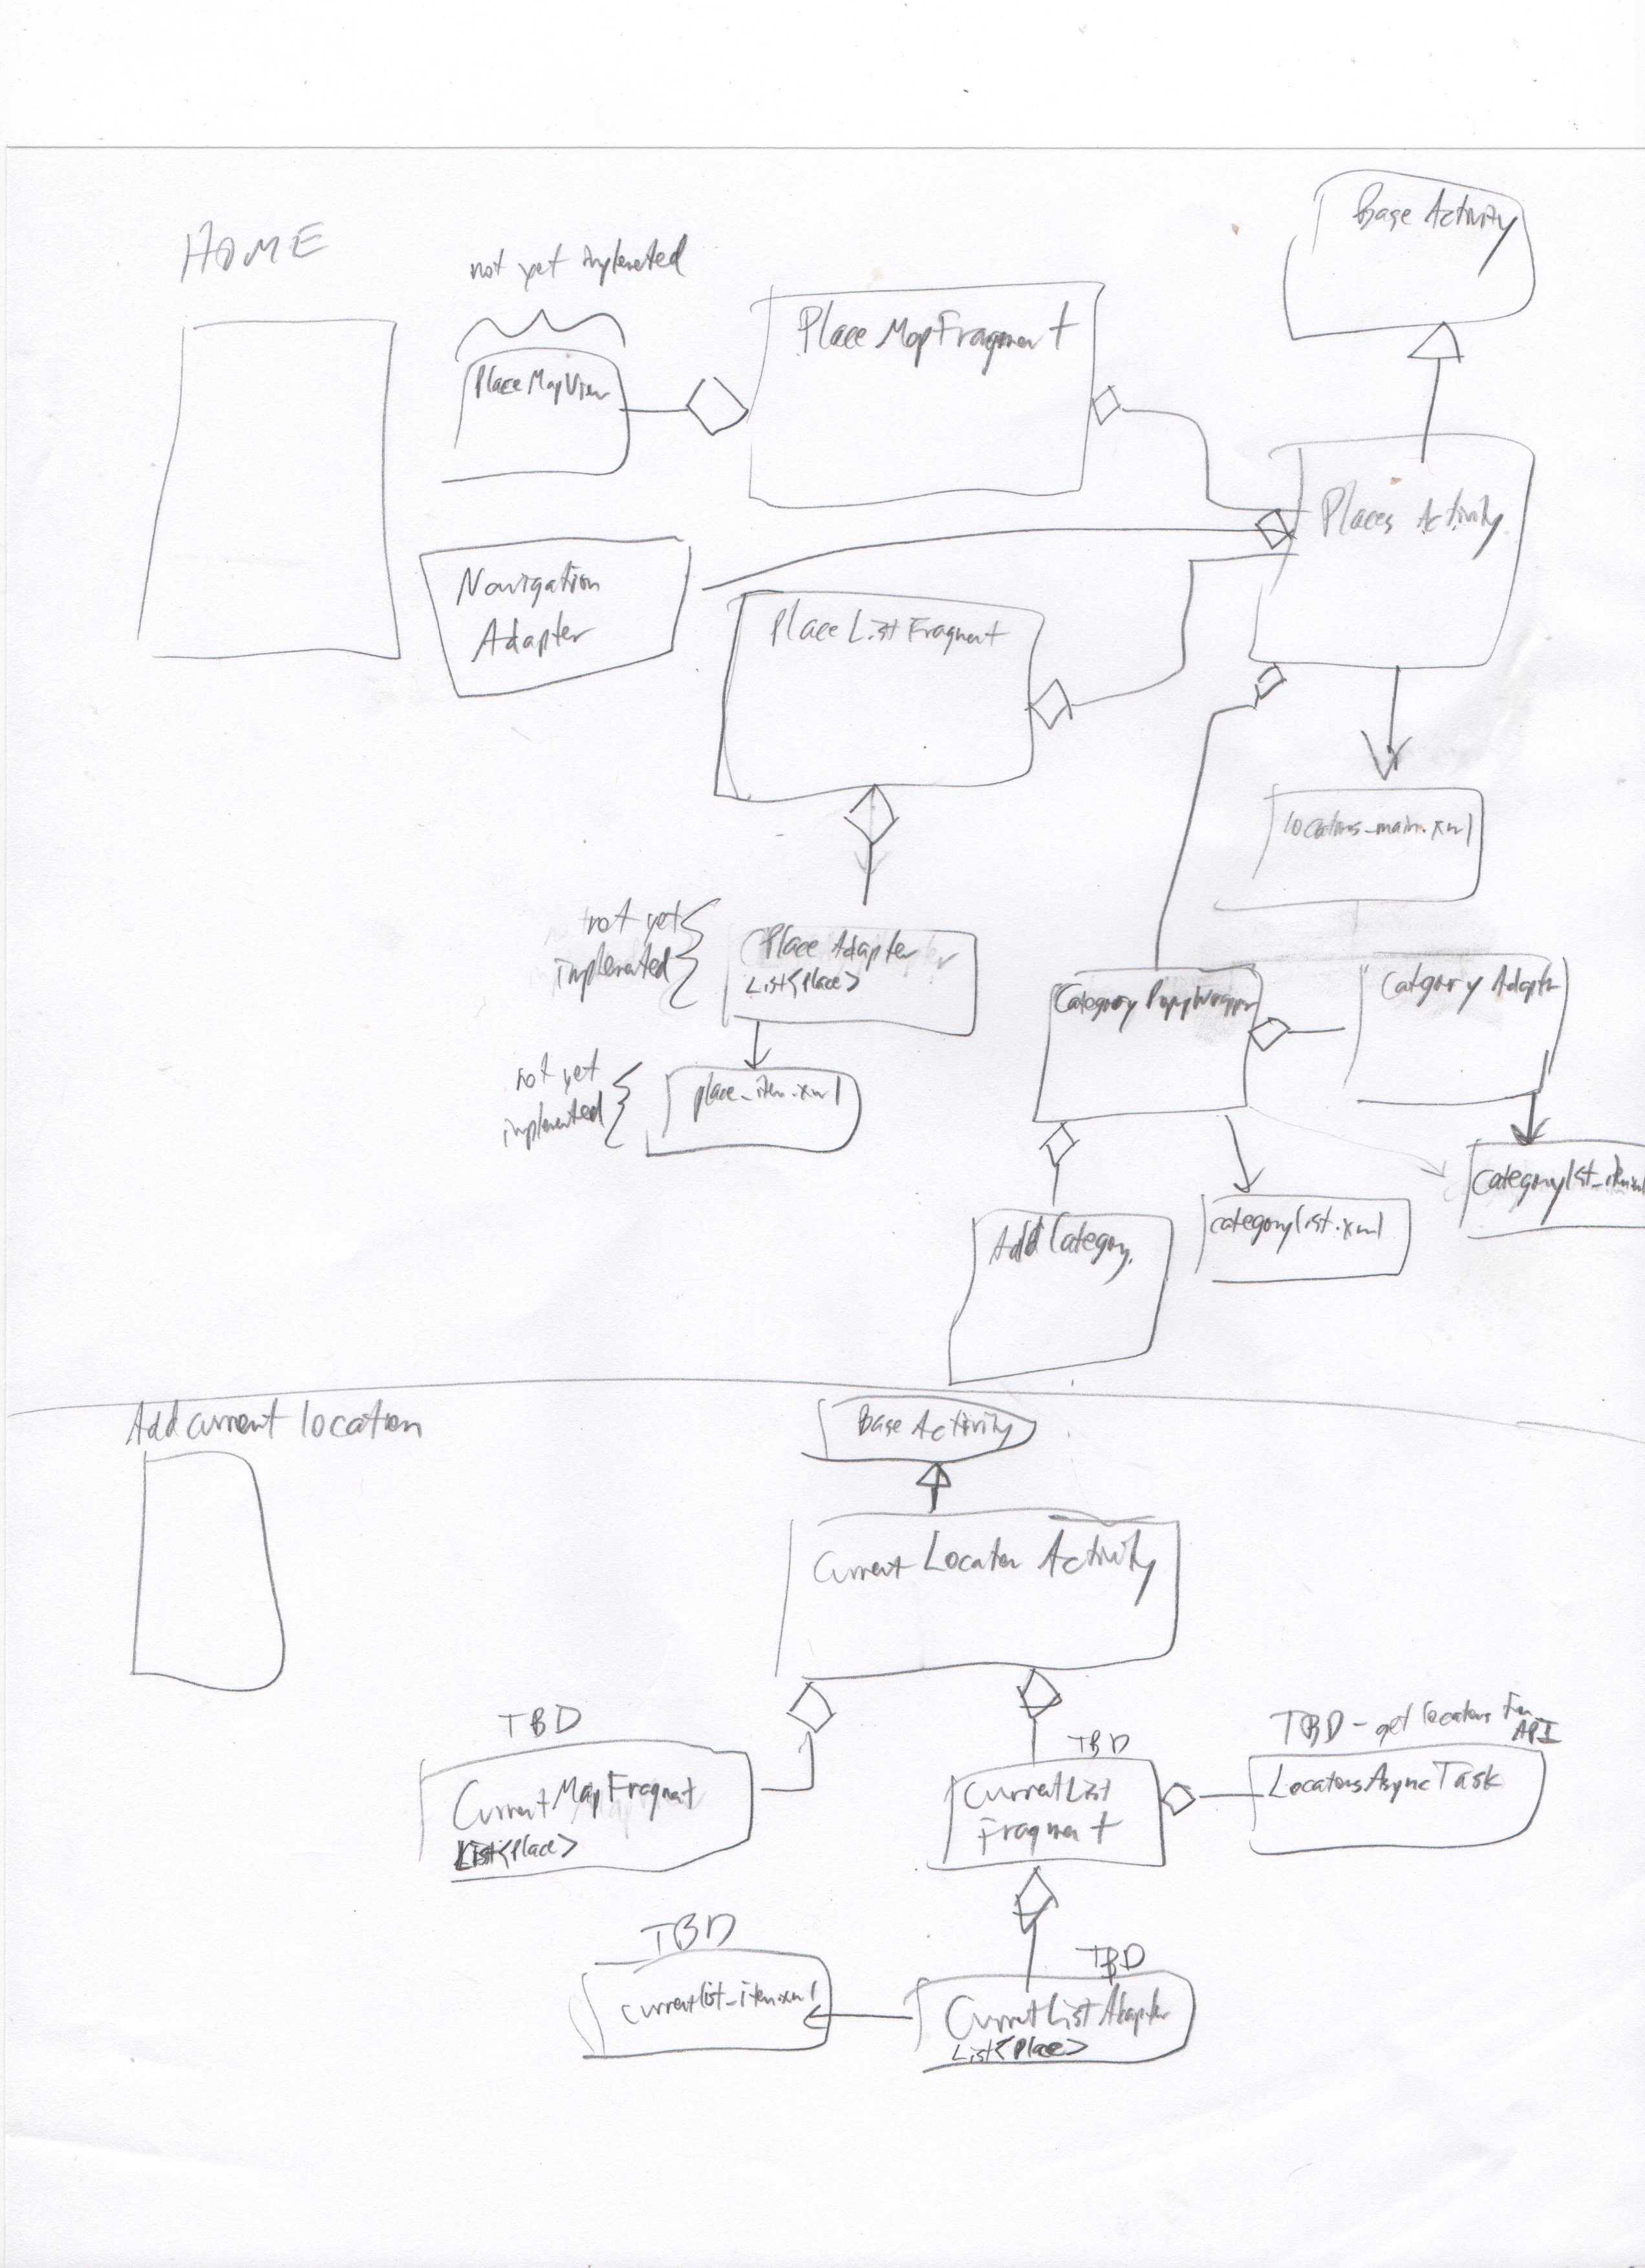 HOME
not yet implemented
Base Activity
PlaceMapFragment
PlaceMapView
Places Activity
Navigation
Adapter
PlaceListFragment
locations_main.xml
not yet
implemented
Place Adapter
List<Place>
CategoryPopupWrapper
Category Adapter
not yet
implemented
place_item.xml
categorylist_item.xml
categorylist.xml
Add Category
Add current location
Base Activity
Current Location Activity
TBD
CurrentMapFragment
List<Place>
TBD
CurrentList
Fragment
TBD - get locations from
API
LocationsAsyncTask
TBD
currentlist_item.xml
TBD
CurrentListAdapter
List<Place>